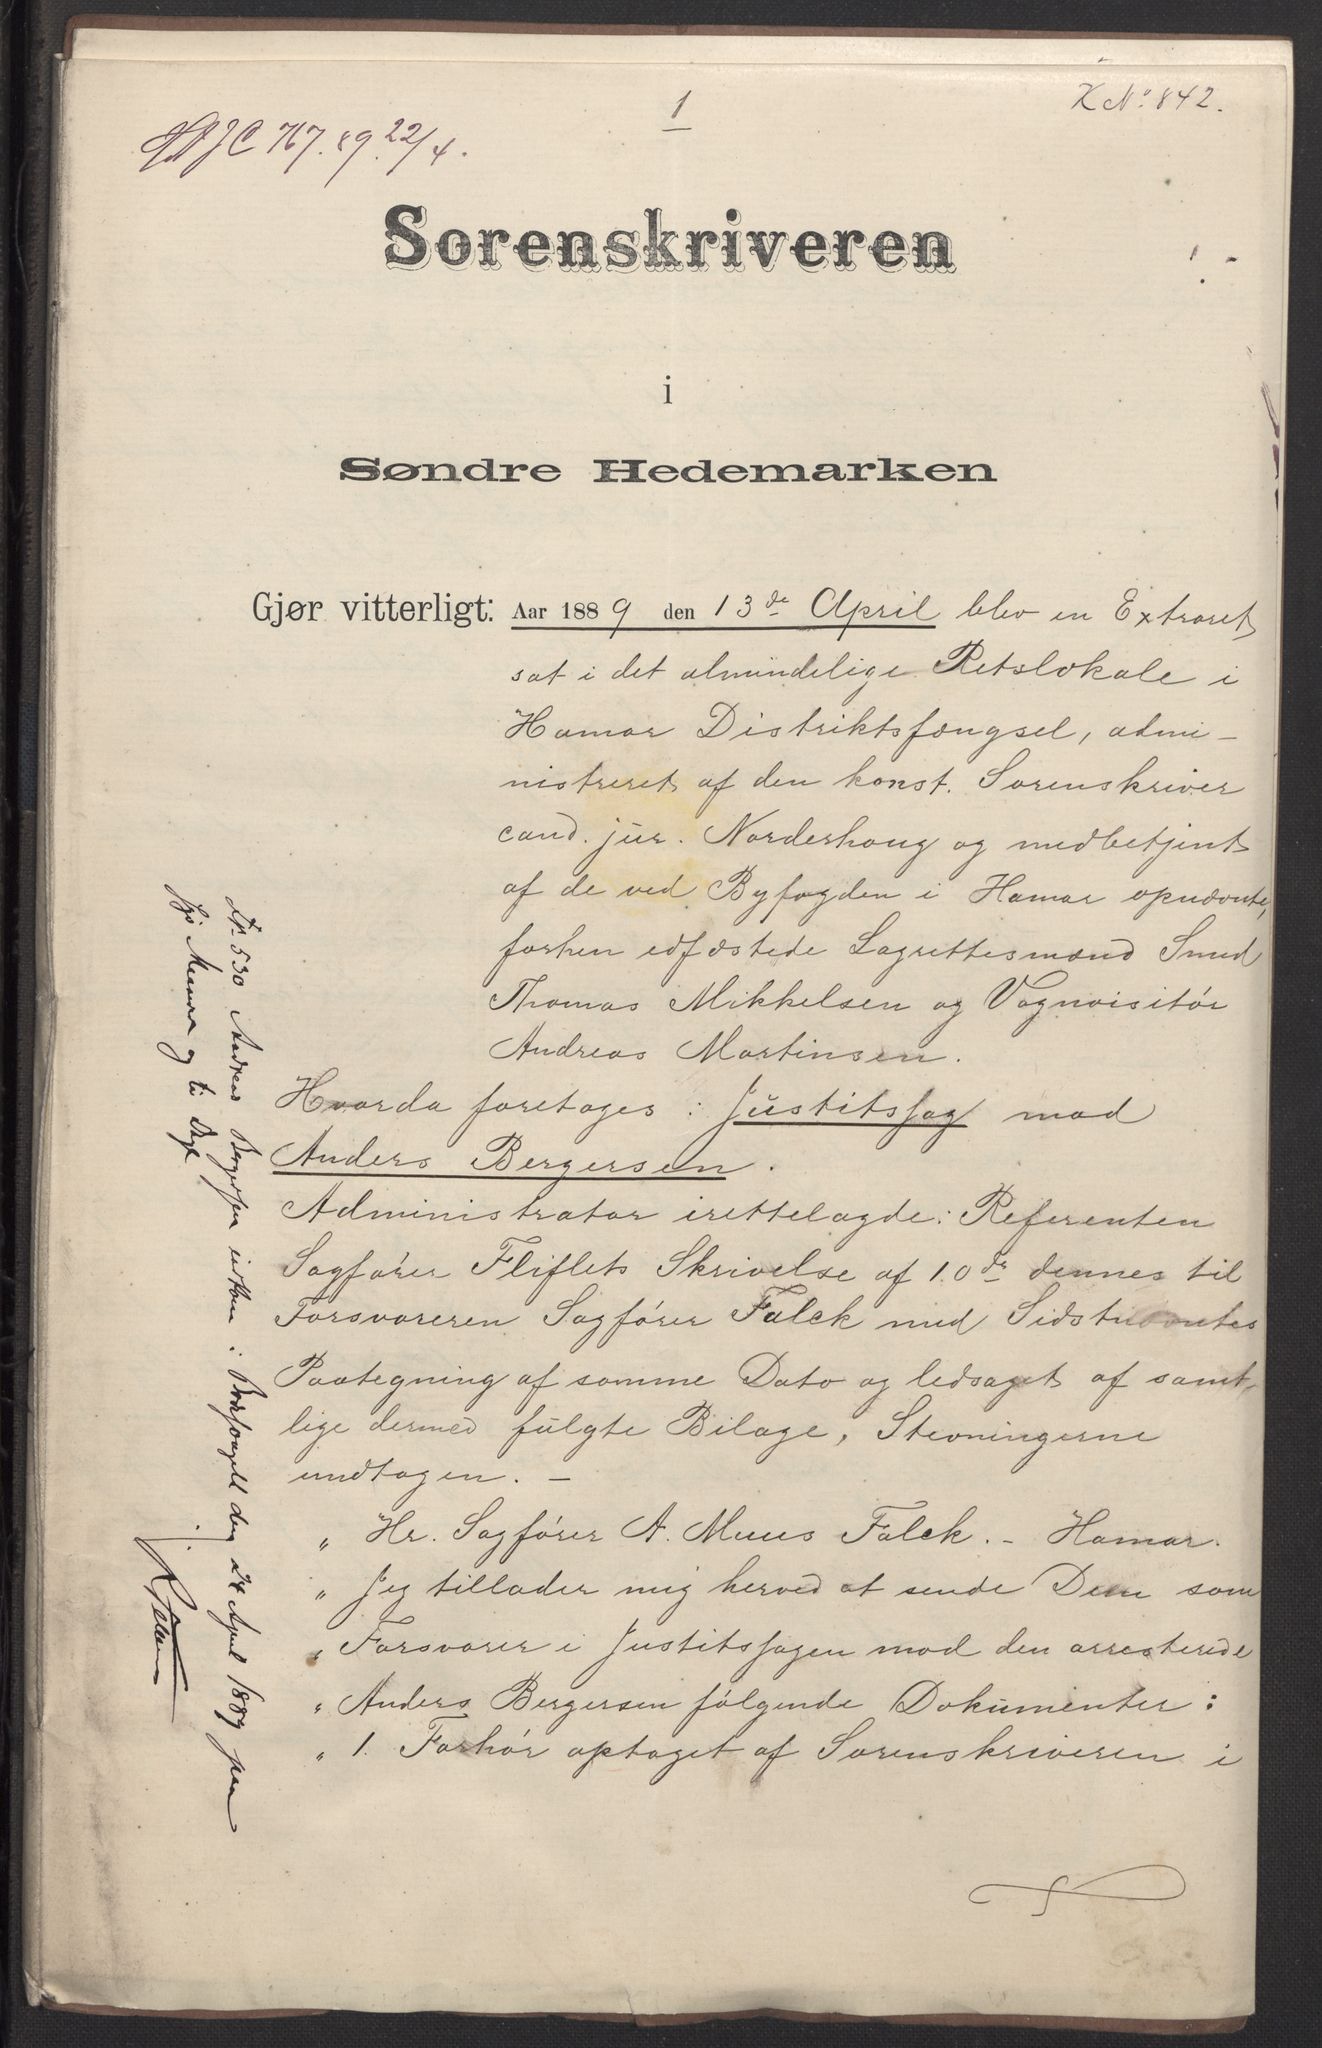 1
K No 842.
JC 767. 89. 22/4.
Sorenskriveren
i
Søndre Hedemarken
Gjør vitterligt: Aar 1889 den 13de April blev en Extraret
sat i det almindelige Retslokale i
Hamar Distriktsfængsel, admi-
nistreret af den konst. Sorenskriver
cand. jur. Norderhoug og medbetjent
af de ved Byfogden i Hamar opnævnte,
forhen edfæstede Lagrettesmænd Smed
Thomas Mikkelsen og Vognvisitør
Andreas Martinsen.
Hvorda foretoges: Justitssag mod
Anders Bergersen.
Administrator irettelagde: Referenten
Sagfører Fliflets Skrivelse af 10de dennes til
Forsvareren Sagfører Falck med Sidstnævntes
Paategning af samme Dato og ledsaget af samt-
lige dermed fulgte Bilage, Stevningerne
undtagen. –
" Hr. Sagfører A. Muus Falck. – Hamar.
" Jeg tillader mig herved at sende Dem som
" Forsvarer i Justitssagen mod den arresterede
" Anders Bergersen følgende Dokumenter:
" 1. Forhør optaget af Sorenskriveren i
No 530 Andreas Bergersen den 24 April 1889 paa
og ti Dage